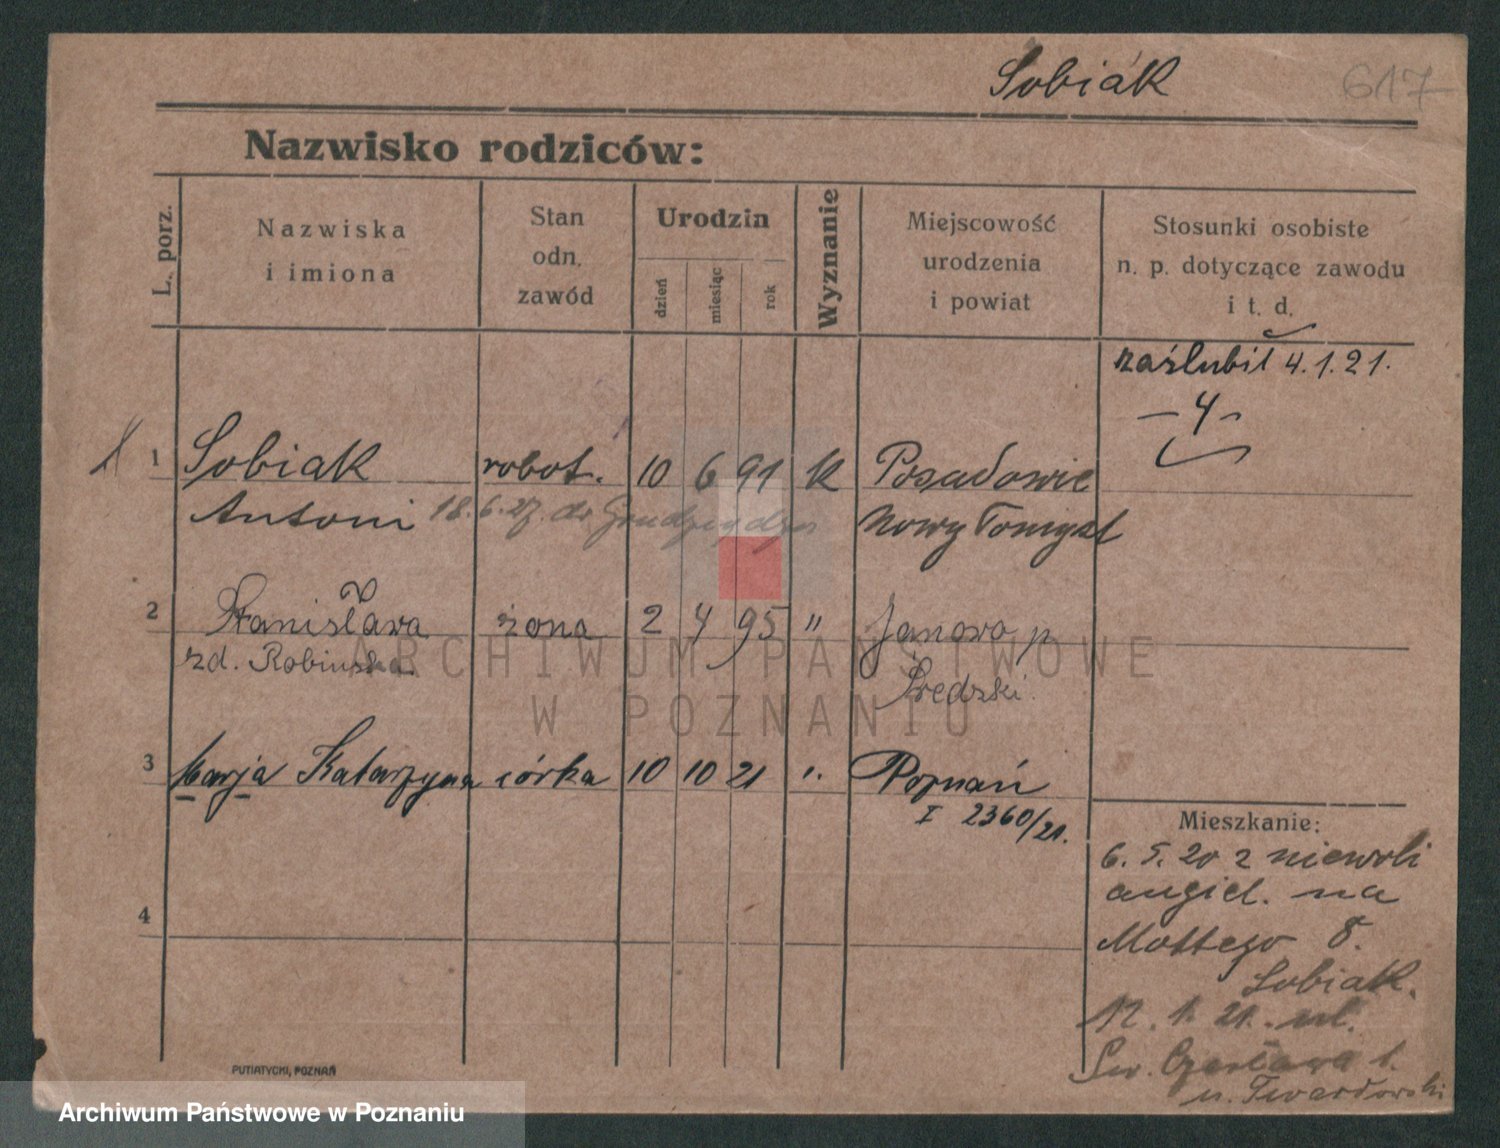 Sobiak 617
Nazwisko rodziców:
L. porz.
Nazwiska
i imiona
Stan
odn.
zawód
Urodzin
dzień
miesiąc
rok
Wyznanie
Miejscowość
urodzenia
i powiat
Stosunki osobiste
n. p. dotyczące zawodu
i t. d.
zaślubił 4.1.21.
- 4 -
1 Sobiak robot. 10 6 91 k Posadowie
Antoni 18.6.27. do Nowy Tomyśl
2 Stanisława żona 2 4 95 " Janowo p
zd. Rabiuska Średzki.
3 Marja Katarzyna córka 10 10 21 ". Poznań
I 2360/21.
4
Mieszkanie:
6. 5. 20 z niewoli
angiel. na
Mottego 8.
Sobiak.
12. 1. 21. ul.
Św. Czesława 1.
u. Twardowski
PUTIATYCKI, POZNAŃ
ARCHIWUM PAŃSTWOWE
W POZNANIU
Archiwum Państwowe w Poznaniu